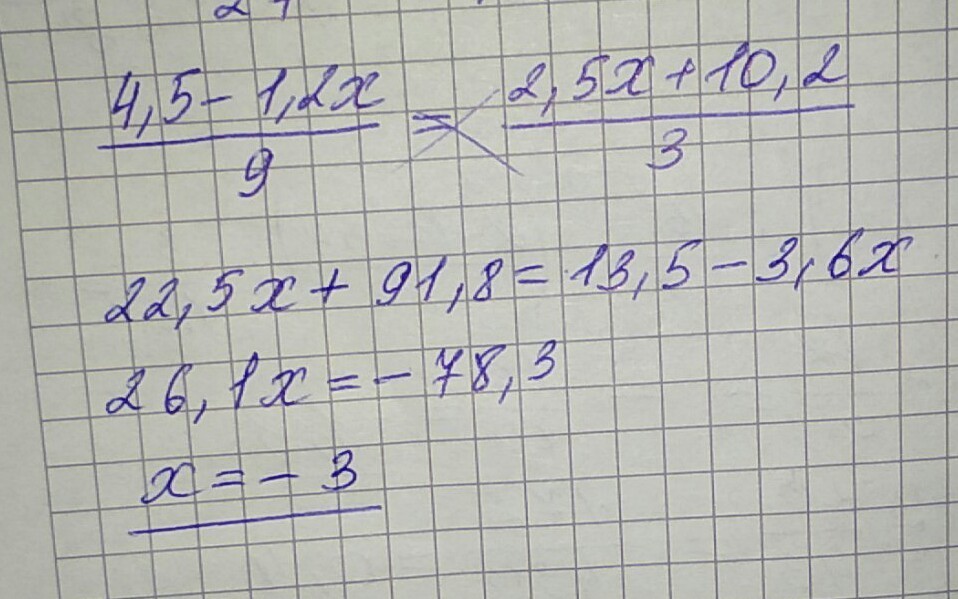 4,5 - 1,2x / 9 = 2,5x + 10,2 / 3
22,5x + 91,8 = 13,5 - 3,6x
26,1x = - 78,3
x = - 3